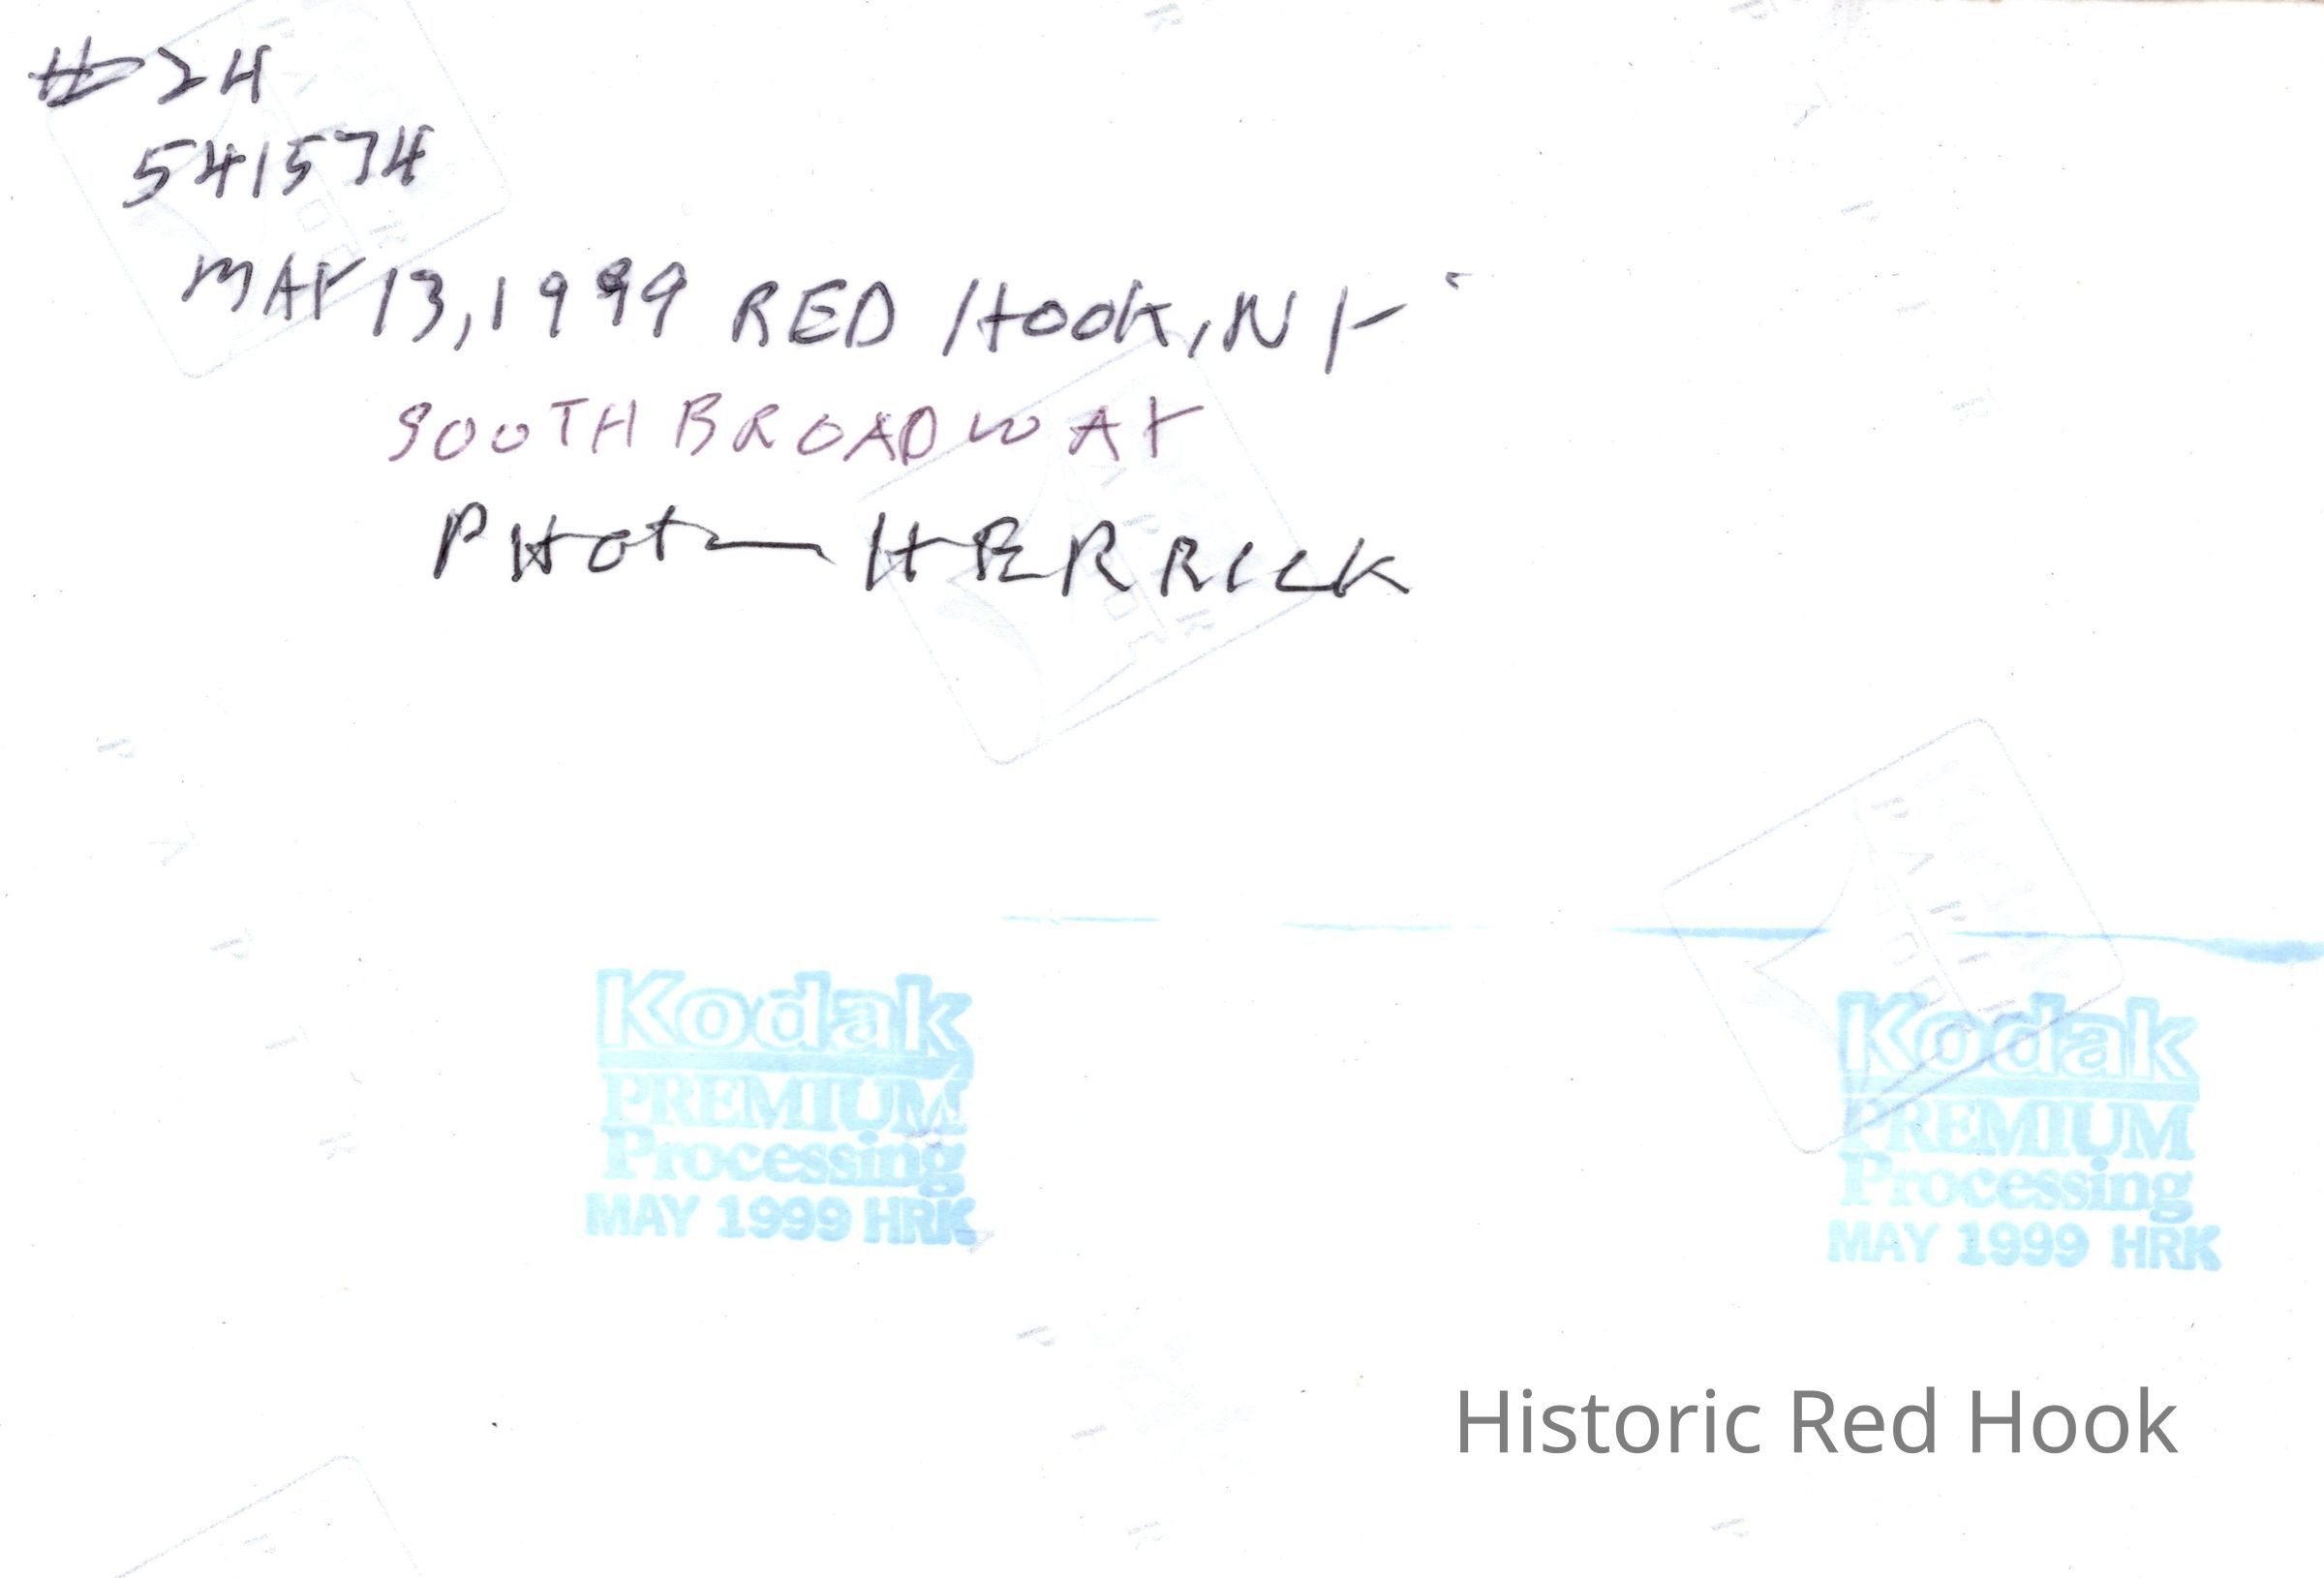 #24
541574
MAY 13, 1999 RED HOOK, NY
SOUTH BROADWAY
PHOTO HERRICK
Kodak
PREMIUM
Processing
MAY 1999 HRK
Kodak
PREMIUM
Processing
MAY 1999 HRK
Historic Red Hook